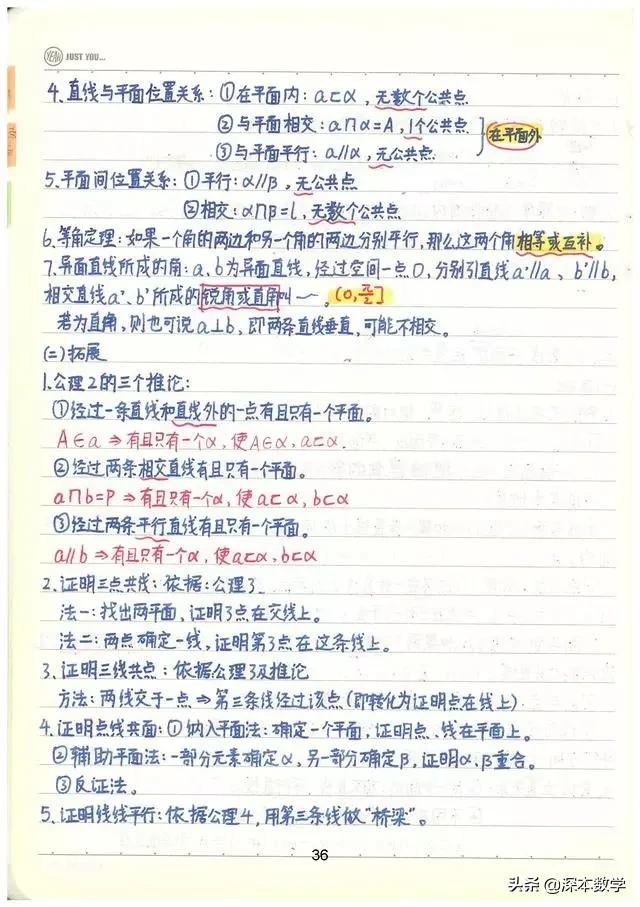 YEAH JUST YOU...
4、直线与平面位置关系：①在平面内：a⊂α，无数个公共点
②与平面相交：a∩α=A，1个公共点
③与平面平行：a∥α，无公共点
在平面外
5、平面间位置关系：①平行：α∥β，无公共点
②相交：α∩β=l，无数个公共点
6、等角定理：如果一个角的两边和另一个角的两边分别平行，那么这两个角相等或互补。
7、异面直线所成的角：a、b为异面直线，经过空间一点O，分别引直线a'∥a、b'∥b，
相交直线a'、b'所成的锐角或直角叫～。(0,π/2]
若为直角，则也可说a⊥b，即两条直线垂直，可能不相交。
(二)拓展
1、公理2的三个推论：
①经过一条直线和直线外的一点有且只有一个平面。
A∈a ⇒有且只有一个α，使A∈α，a⊂α.
②经过两条相交直线有且只有一个平面。
a∩b=P ⇒有且只有一个α，使a⊂α，b⊂α
③经过两条平行直线有且只有一个平面。
a∥b ⇒有且只有一个α，使a⊂α，b⊂α
2、证明三点共线：依据：公理3
法一：找出两平面，证明3点在交线上。
法二：两点确定一线，证明第3点在这条线上。
3、证明三线共点：依据公理3及推论
方法：两线交于一点⇒第三条线经过该点(即转化为证明点在线上)．
4、证明点线共面：①纳入平面法：确定一个平面，证明点、线在平面上。
②辅助平面法：一部分元素确定α，另一部分确定β，证明α、β重合。
③反证法。
5、证明线线平行：依据公理4，用第三条线做“桥梁”。
36
头条@深本数学